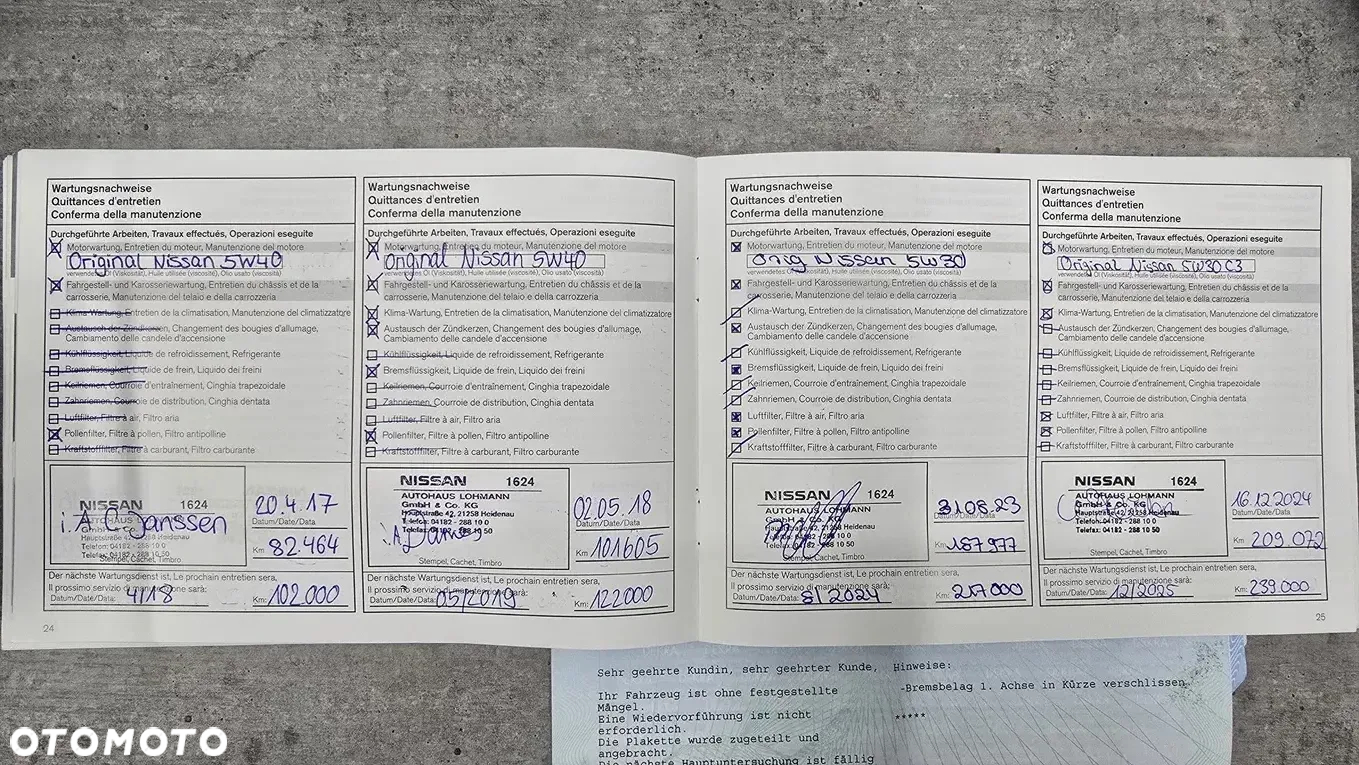 Wartungsnachweise
Quittances d'entretien
Conferma della manutenzione
Durchgeführte Arbeiten, Travaux effectués, Operazioni eseguite
Motorwartung, Entretien du moteur, Manutenzione del motore
Original Nissan 5W40
verwendetes Öl (Viskosität), Huile utilisée (viscosité), Olio usato (viscosità)
Fahrgestell- und Karosseriewartung, Entretien du châssis et de la
carrosserie, Manutenzione del telaio e della carrozzeria
Klima-Wartung, Entretien de la climatisation, Manutenzione del climatizzatore
Austausch der Zündkerzen, Changement des bougies d'allumage,
Cambiamento delle candele d'accensione
Kühlflüssigkeit, Liquide de refroidissement, Refrigerante
Bremsflüssigkeit, Liquide de frein, Liquido dei freini
Keilriemen, Courroie d'entraînement, Cinghia trapezoidale
Zahnriemen, Courroie de distribution, Cinghia dentata
Luftfilter, Filtre à air, Filtro aria
Pollenfilter, Filtre à pollen, Filtro antipolline
Kraftstofffilter, Filtre à carburant, Filtro carburante
NISSAN 1624
i.A. C. Janssen
Telefon: 04182 - 288 10 0
Telefax: 04182 - 288 10 50
Stempel, Cachet, Timbro
20.4.17
Datum/Date/Data
Km 82.464
Der nächste Wartungsdienst ist, Le prochain entretien sera,
Il prossimo servizio di manutenzione sarà:
Datum/Date/Data: 4/18 Km: 102.000
24
Wartungsnachweise
Quittances d'entretien
Conferma della manutenzione
Durchgeführte Arbeiten, Travaux effectués, Operazioni eseguite
Motorwartung, Entretien du moteur, Manutenzione del motore
Original Nissan 5W40
verwendetes Öl (Viskosität), Huile utilisée (viscosité), Olio usato (viscosità)
Fahrgestell- und Karosseriewartung, Entretien du châssis et de la
carrosserie, Manutenzione del telaio e della carrozzeria
Klima-Wartung, Entretien de la climatisation, Manutenzione del climatizzatore
Austausch der Zündkerzen, Changement des bougies d'allumage,
Cambiamento delle candele d'accensione
Kühlflüssigkeit, Liquide de refroidissement, Refrigerante
Bremsflüssigkeit, Liquide de frein, Liquido dei freini
Keilriemen, Courroie d'entraînement, Cinghia trapezoidale
Zahnriemen, Courroie de distribution, Cinghia dentata
Luftfilter, Filtre à air, Filtro aria
Pollenfilter, Filtre à pollen, Filtro antipolline
Kraftstofffilter, Filtre à carburant, Filtro carburante
NISSAN 1624
AUTOHAUS LOHMANN
GmbH & Co. KG
Hauptstraße 42, 21258 Heidenau
Telefon: 04182 - 288 10 0
Telefax: 04182 - 288 10 50
Stempel, Cachet, Timbro
02.05.18
Datum/Date/Data
Km 101605
Der nächste Wartungsdienst ist, Le prochain entretien sera,
Il prossimo servizio di manutenzione sarà:
Datum/Date/Data: 05/2019 Km: 122.000
Wartungsnachweise
Quittances d'entretien
Conferma della manutenzione
Durchgeführte Arbeiten, Travaux effectués, Operazioni eseguite
Motorwartung, Entretien du moteur, Manutenzione del motore
Orig Nissan 5W30
verwendetes Öl (Viskosität), Huile utilisée (viscosité), Olio usato (viscosità)
Fahrgestell- und Karosseriewartung, Entretien du châssis et de la
carrosserie, Manutenzione del telaio e della carrozzeria
Klima-Wartung, Entretien de la climatisation, Manutenzione del climatizzatore
Austausch der Zündkerzen, Changement des bougies d'allumage,
Cambiamento delle candele d'accensione
Kühlflüssigkeit, Liquide de refroidissement, Refrigerante
Bremsflüssigkeit, Liquide de frein, Liquido dei freini
Keilriemen, Courroie d'entraînement, Cinghia trapezoidale
Zahnriemen, Courroie de distribution, Cinghia dentata
Luftfilter, Filtre à air, Filtro aria
Pollenfilter, Filtre à pollen, Filtro antipolline
Kraftstofffilter, Filtre à carburant, Filtro carburante
NISSAN 1624
AUTOHAUS LOHMANN
GmbH & Co. KG
Hauptstraße 42, 21258 Heidenau
Telefon: 04182 - 288 10 0
Telefax: 04182 - 288 10 50
Stempel, Cachet, Timbro
31.08.23
Datum/Date/Data
Km 187977
Der nächste Wartungsdienst ist, Le prochain entretien sera,
Il prossimo servizio di manutenzione sarà:
Datum/Date/Data: 8/2024 Km: 217000
Wartungsnachweise
Quittances d'entretien
Conferma della manutenzione
Durchgeführte Arbeiten, Travaux effectués, Operazioni eseguite
Motorwartung, Entretien du moteur, Manutenzione del motore
Original Nissan 5W30 C3
verwendetes Öl (Viskosität), Huile utilisée (viscosité), Olio usato (viscosità)
Fahrgestell- und Karosseriewartung, Entretien du châssis et de la
carrosserie, Manutenzione del telaio e della carrozzeria
Klima-Wartung, Entretien de la climatisation, Manutenzione del climatizzatore
Austausch der Zündkerzen, Changement des bougies d'allumage,
Cambiamento delle candele d'accensione
Kühlflüssigkeit, Liquide de refroidissement, Refrigerante
Bremsflüssigkeit, Liquide de frein, Liquido dei freini
Keilriemen, Courroie d'entraînement, Cinghia trapezoidale
Zahnriemen, Courroie de distribution, Cinghia dentata
Luftfilter, Filtre à air, Filtro aria
Pollenfilter, Filtre à pollen, Filtro antipolline
Kraftstofffilter, Filtre à carburant, Filtro carburante
NISSAN 1624
AUTOHAUS LOHMANN
GmbH & Co. KG
Hauptstraße 42, 21258 Heidenau
Telefon: 04182 - 288 10 0
Telefax: 04182 - 288 10 50
Stempel, Cachet, Timbro
16.12.2024
Datum/Date/Data
Km: 209.072
Der nächste Wartungsdienst ist, Le prochain entretien sera,
Il prossimo servizio di manutenzione sarà:
Datum/Date/Data: 12/2025 Km: 239.000
25
Sehr geehrte Kundin, sehr geehrter Kunde,
Ihr Fahrzeug ist ohne festgestellte
Mängel.
Eine Wiedervorführung ist nicht
erforderlich.
Die Plakette wurde zugeteilt und
angebracht.
Die nächste Hauptuntersuchung ist fällig
Hinweise:
-Bremsbelag 1. Achse in Kürze verschlissen
*****
OTOMOTO